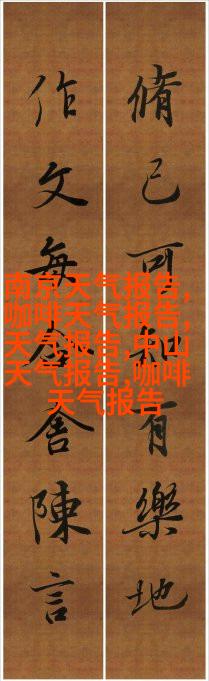 脩己可知有樂地
作文每舍陳言
南京天气报告,
咖啡天气报告,
天气报告,中山
天气报告,咖啡
天气报告